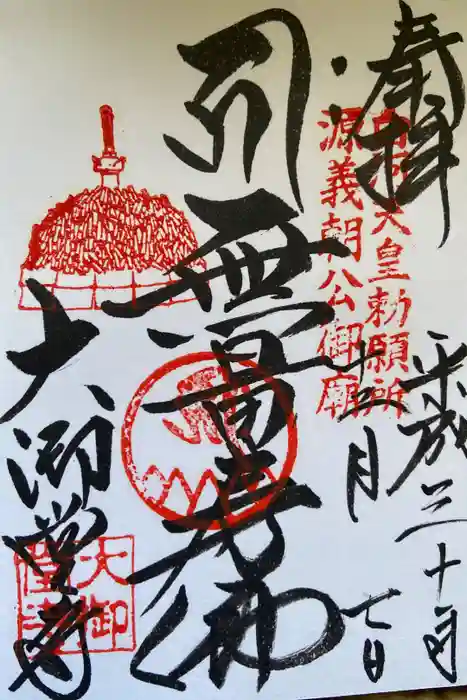 奉拝
白河天皇勅願所
源義朝公御廟
平成三十年
十一月
七日
無量寿佛
大御堂寺
大御堂寺